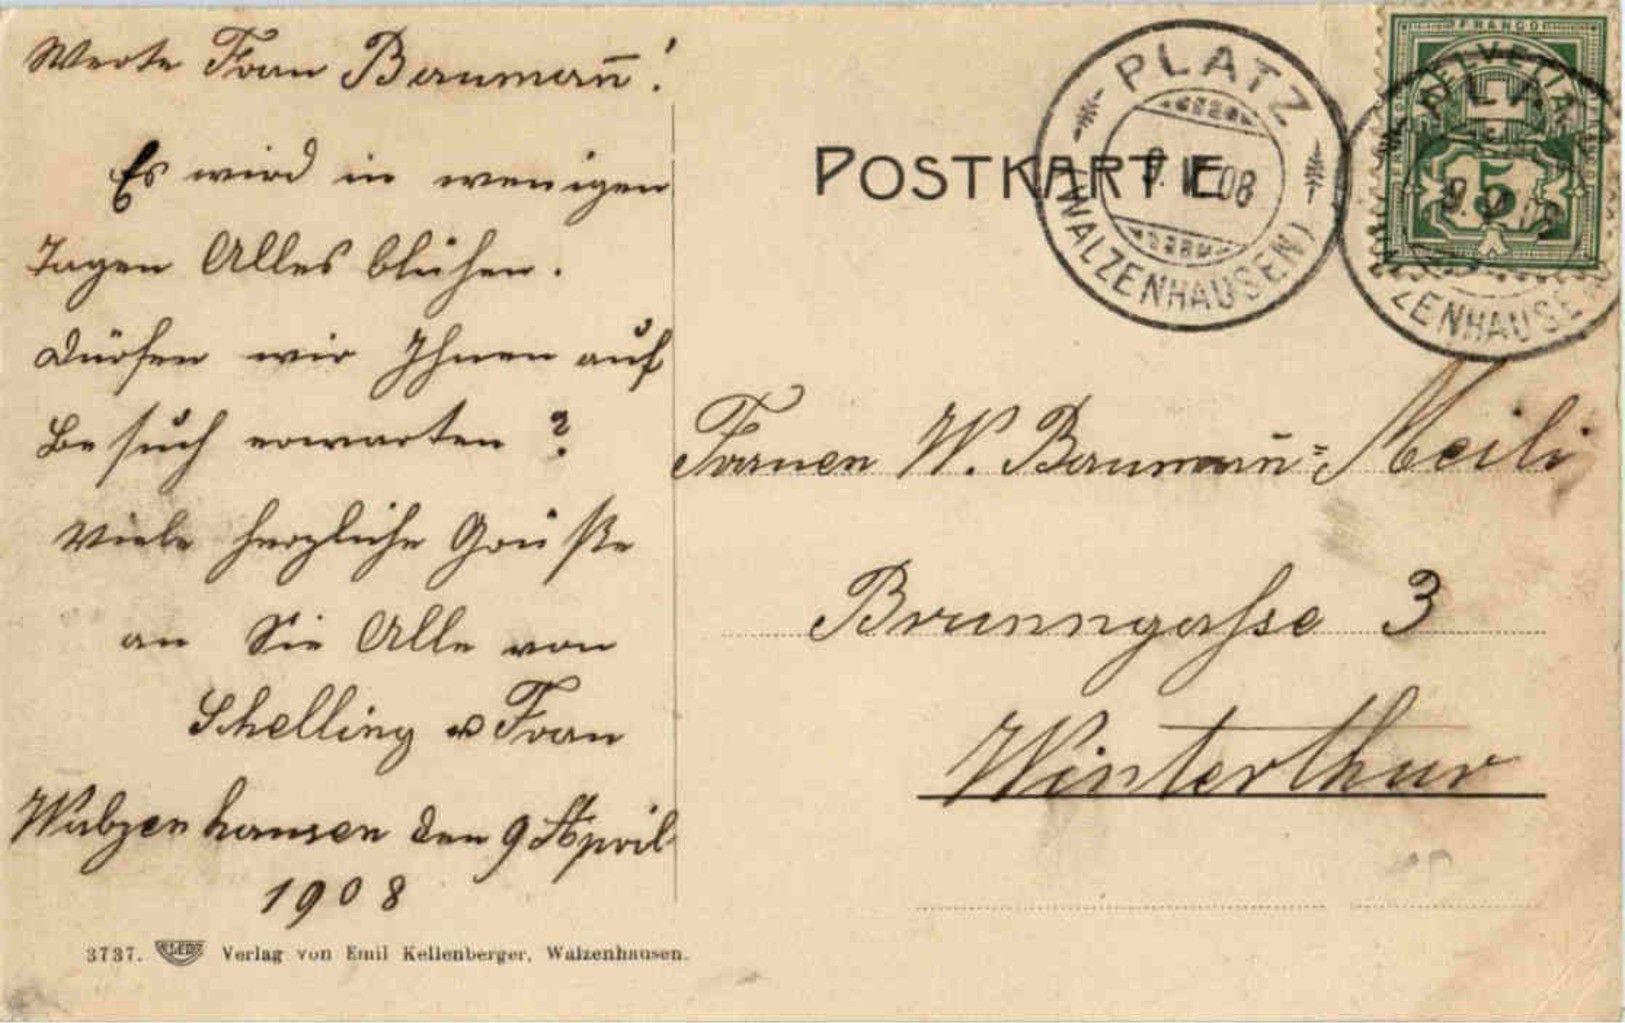 Werte Frau Baumann̄!
Es wird in wenigen
Tagen Alles blühen.
Dürfen wir Ihnen auf
Besuch erwarten?
Viele herzliche Grüße
an Sie Alle von
Schelling u Frau
Walzenhausen den 9 April
1908
3737. Verlag von Emil Kellenberger, Walzenhausen.
POSTKARTE
PLATZ
9. IV. 08
(WALZENHAUSEN)
FRANCO
HELVETIA
5
Frauen W. Baumañ=Meili
Brunngasse 3
Winterthur